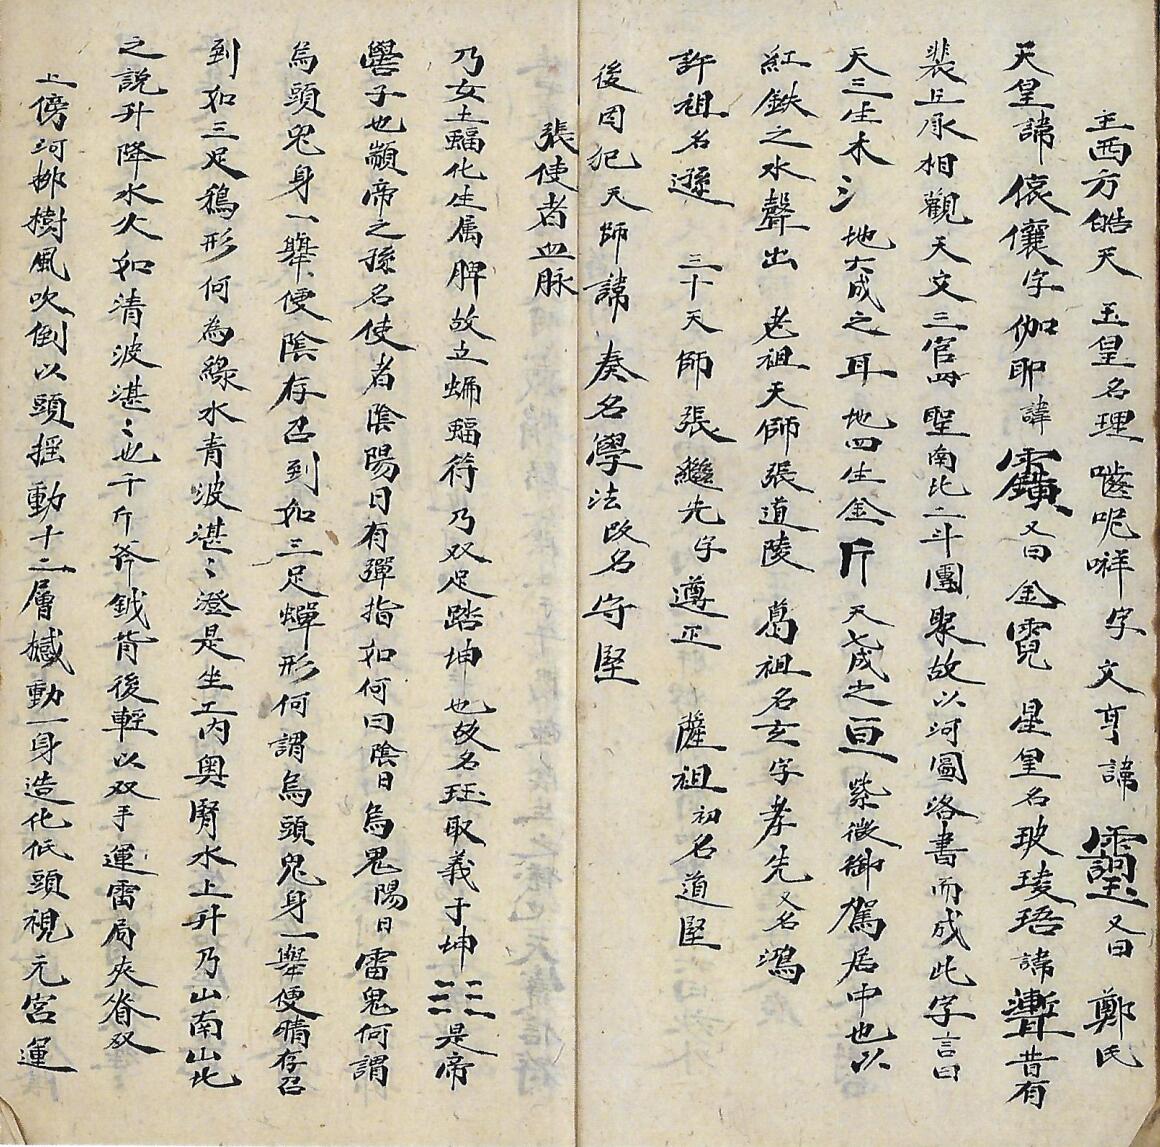 主西方皓天 玉皇名理 嚙呢哶字 文亨諱 又曰 鄭氏
天皇諱 儂儴字 伽耶諱 又曰 金霓 星皇名 玻琖珸 諱 昔有
裴上永相觀天文三官四聖南北二斗團聚故以河圖洛書而成此字言曰
天三生木氵地六成之耳地四生金斤天九成之亘紫微御駕居中也以
紅鉄之水聲出 老祖天師張道陵 葛祖名玄字孝先又名鴻
許祖名遜 三十天師張繼先字遵正 薩祖初名道堅
後因犯天師諱 奏名學法改名守堅
張使者血脉
乃女土蝠化生属脾故立蝙蝠符乃双足踏坤也故名珏取義于坤☷是帝
嚳子也顓帝之孫名使者陰陽日有彈指如何曰陰日烏鬼陽日雷鬼何謂
烏頭鬼身一舉便陰存召到如三足蟬形何謂烏頭鬼身一舉便晴存召
到如三足鴉形何為緑水青波湛〻澄是坐工内奥腎水上升乃山南山北
之説升降水火如清波湛〻也千斤斧鉞背後輕以双手運雷局夾脊双
上傍河挪樹風吹倒以頭摇動十二層撼動一身造化低頭視元宮運